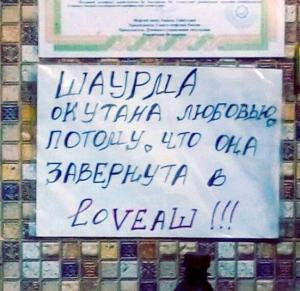 ШАУРМА
ОКУТАНА ЛЮБОВЬЮ,
ПОТОМУ, ЧТО ОНА
ЗАВЕРНУТА В
LOVEАШ !!!